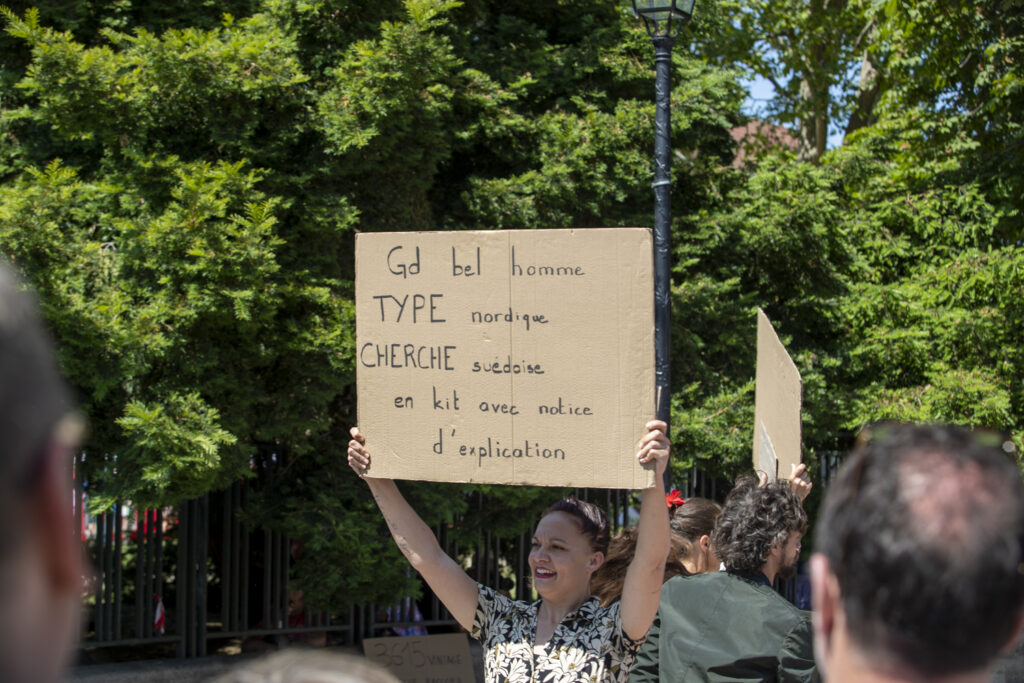 Gd bel homme
TYPE nordique
CHERCHE suédoise
en kit avec notice
d'explication
3615 VINTAGE